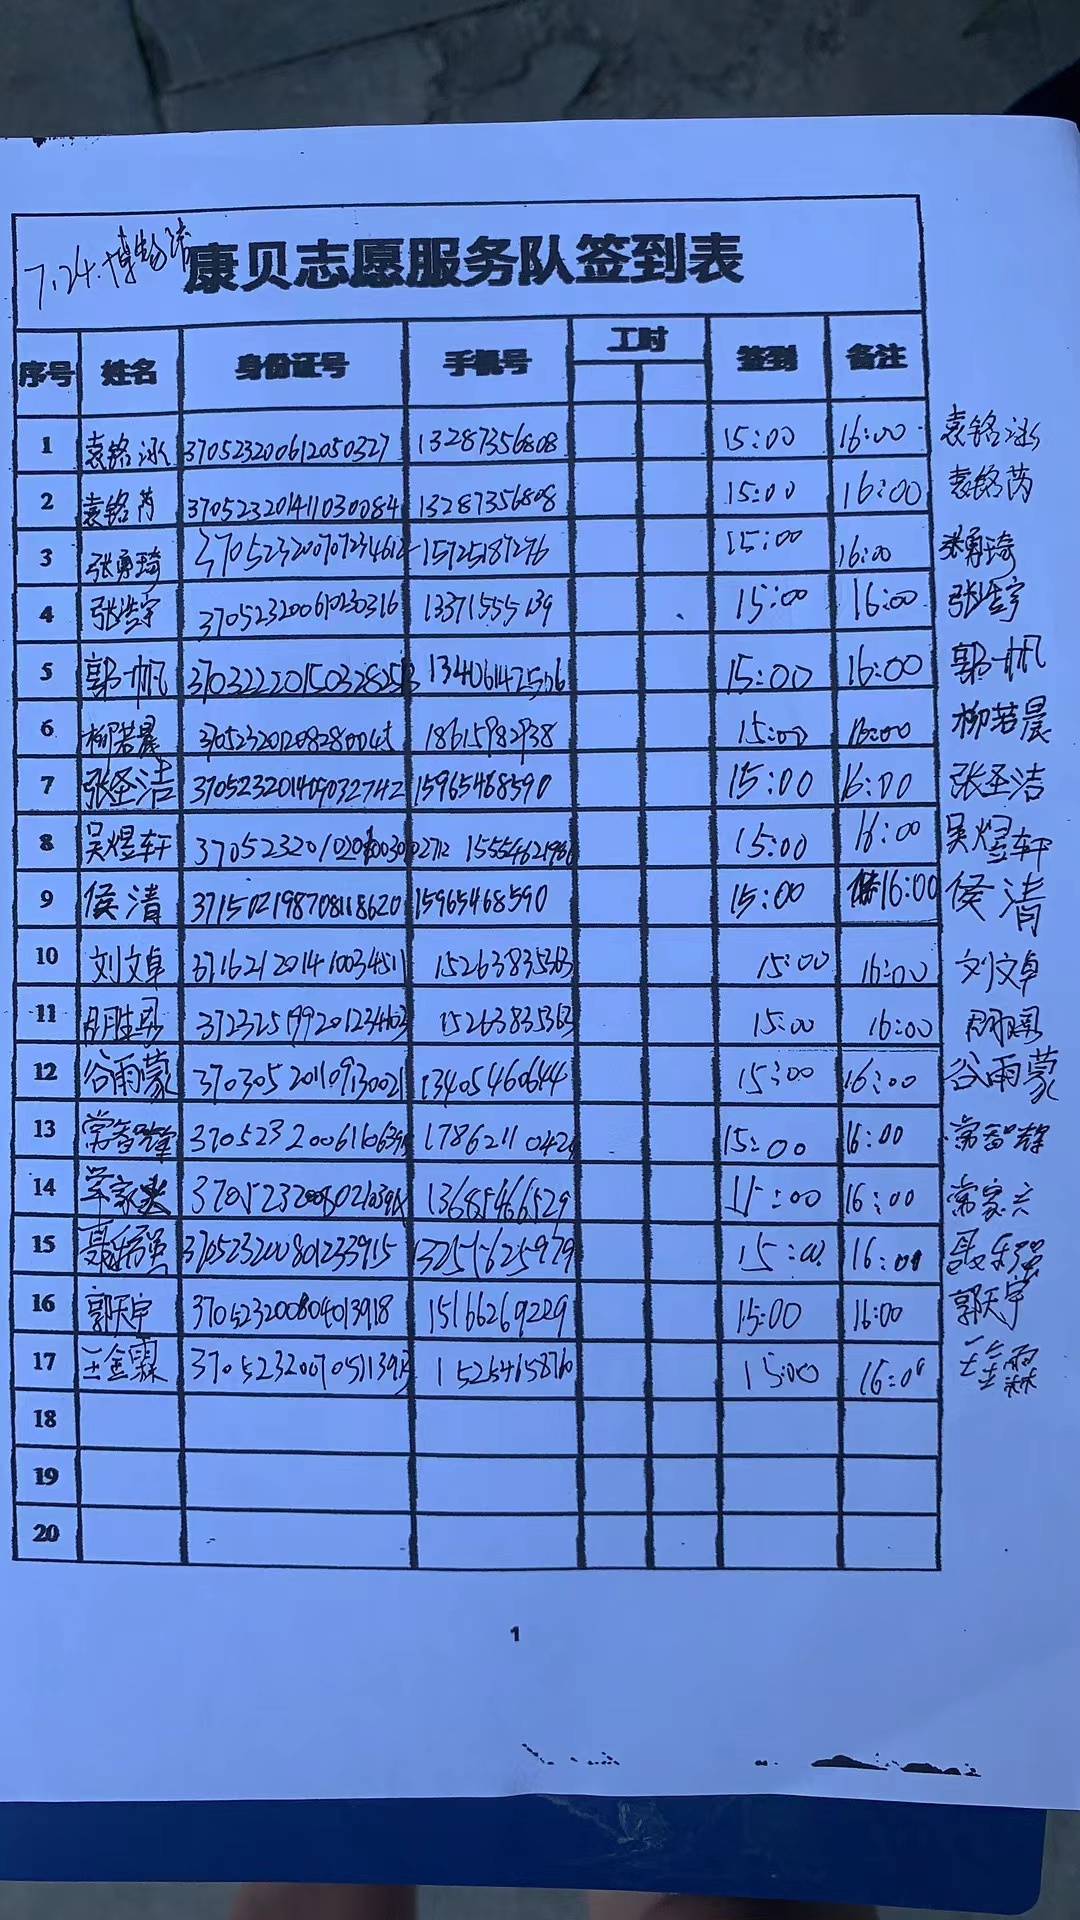 7.24.博物馆
康贝志愿服务队签到表
序号 姓名 身份证号 手机号 工时 签到 备注
1 袁铭冰 370523200612050327 13287356808 15:00 16:00 袁铭冰
2 袁铭芮 370523201411030084 13287356808 15:00 16:00 袁铭芮
3 张勇琦 15725187276 15:00 16:00 张勇琦
4 张浩宇 370523200610230316 13371555139 15:00 16:00 张浩宇
5 郭一帆 15:00 16:00 郭一帆
6 柳若晨 370523201208280045 18615982938 15:00 16:00 柳若晨
7 张圣洁 370523201409032742 15965468590 15:00 16:00 张圣洁
8 吴煜轩 15:00 16:00 吴煜轩
9 侯清 371502198708118620 15965468590 15:00 16:00 侯清
10 刘文卓 371621201410034511 15263835363 15:00 16:00 刘文卓
11 15263835363 15:00 16:00
12 谷雨蒙 370305201109130021 13405460644 15:00 16:00 谷雨蒙
13 常智锋 15:00 16:00 常智锋
14 13685466529 15:00 16:00
15 370523200801233915 15:00 16:00
16 郭天宇 370523200804013918 15166269229 15:00 16:00 郭天宇
17 王金霖 15254658760 15:00 16:00 王金霖
18
19
20
1